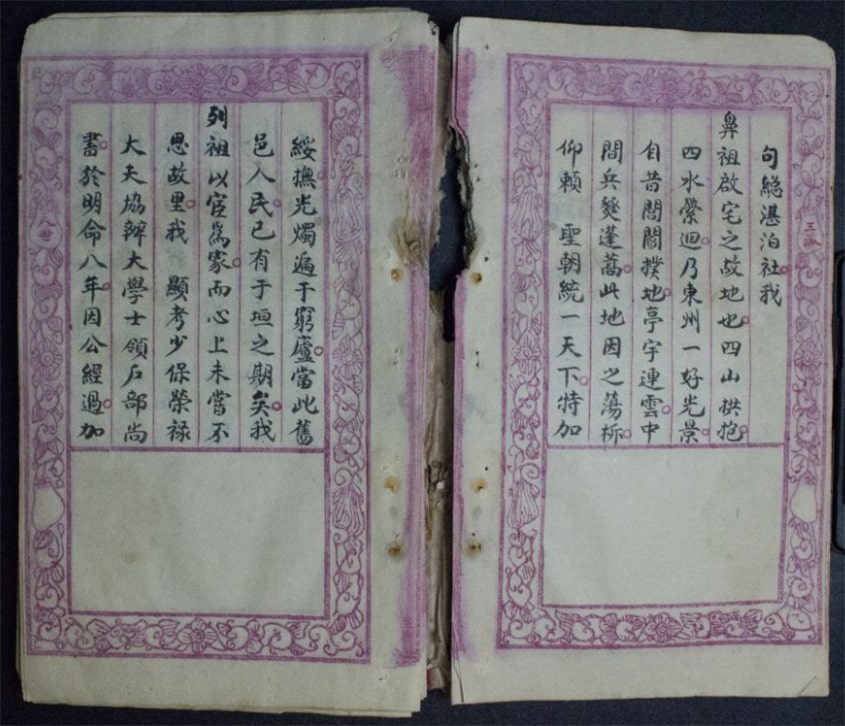 句緫湛泊社我
鼻祖啟宅之故地也四山拱抱
四水縈迴乃東州一好光景
自昔閭閻撲地亭宇連雲中
間兵燹蓬蒿此地因之蕩柝
仰賴 聖朝統一天下特加
綏撫光燭遍于窮廬當此舊
邑人民已有于垣之期矣我
列祖以宦爲家而心上未嘗不
思故里我 顯考少保榮祿
大夫協辦大學士領戶部尚
書於明命八年因公經過加